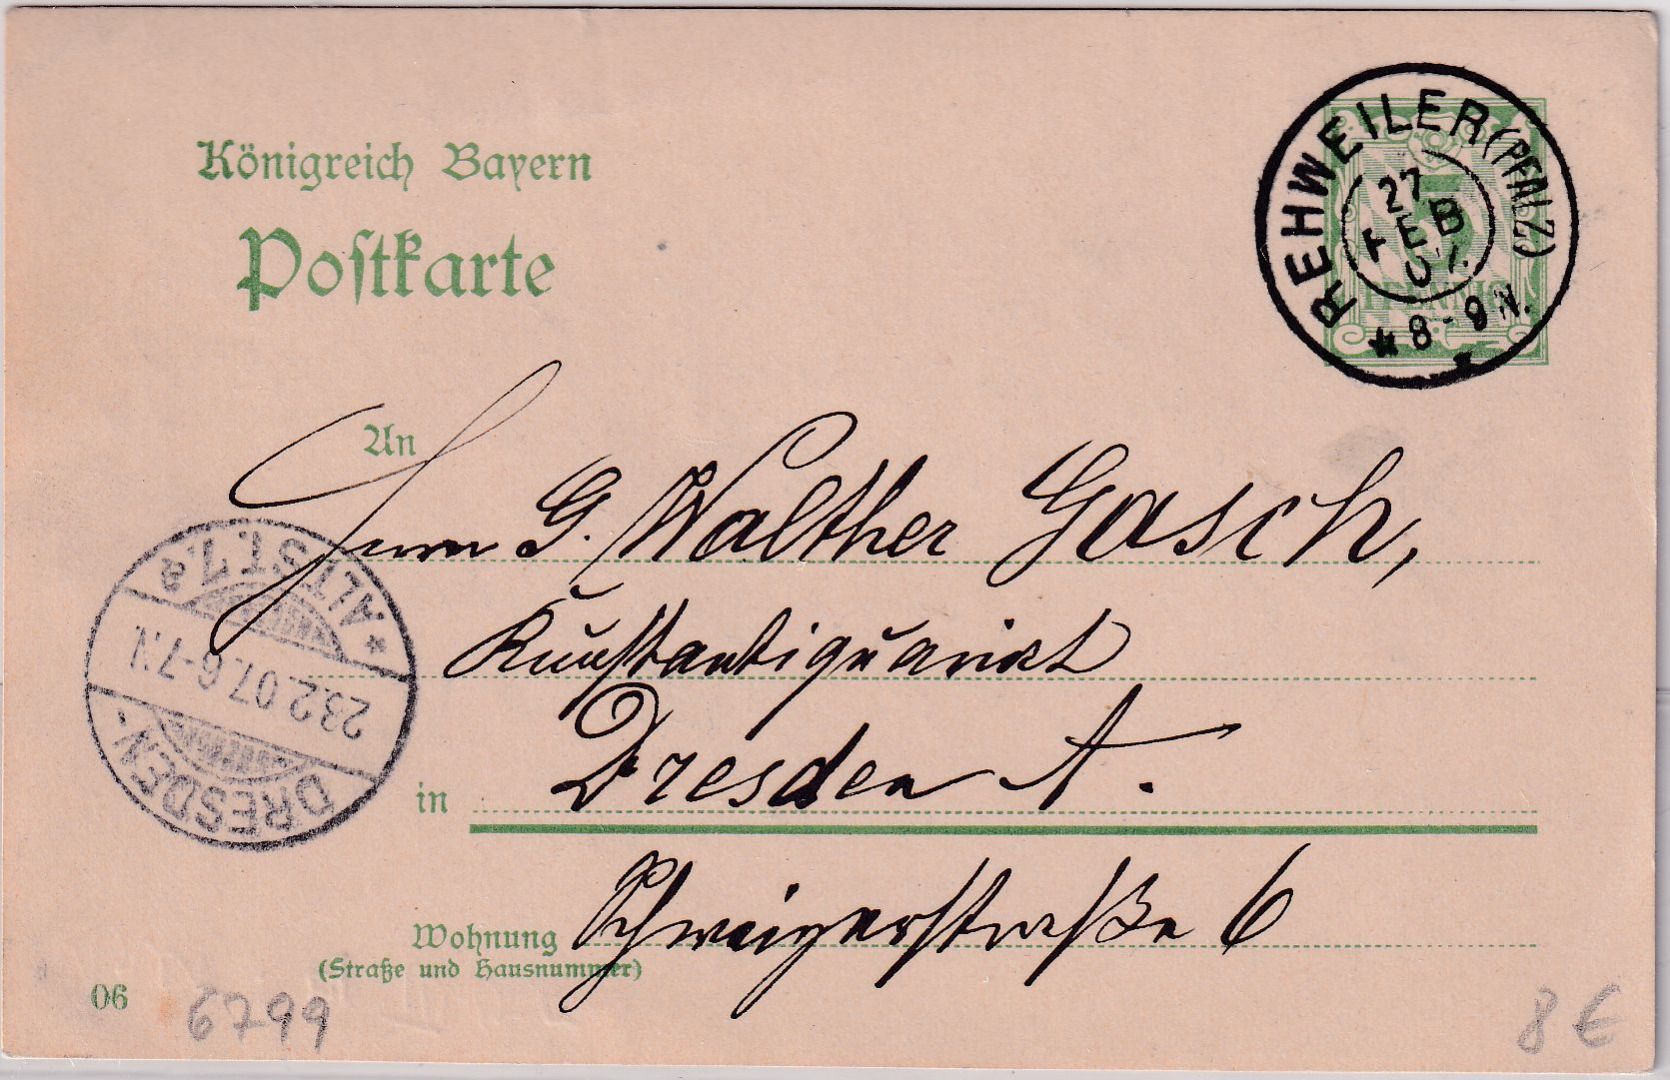 Königreich Bayern
Postkarte
REHWEILER (PFALZ)
27
FEB
07.
8-9 N.
5
PFENNIG
An
Herrn G. Walther Gasch,
Kunstantiquariat
in Dresden A.
Wohnung
(Straße und Hausnummer)
DRESDEN-
ALTST. 7. a
23.2.07. 6-7.N.
06
6799
8 €